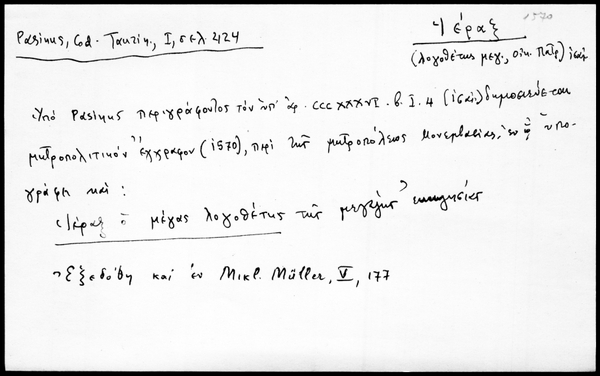 1570
Pasinus, Cod. Taurin., I, σελ. 424
Ἱέραξ
(λογοθέτης μεγ., Οἰκ. Πατρ)
Ὑπὸ Pasinus περιγράφοντος τὸν ὑπ' ἀρ. CCCXXXVI. b. I. 4 δημοσιεύεται
μητροπολιτικὸν ἔγγραφον (1570), περὶ τῆς μητροπόλεως Μονεμβασίας, ἐν ᾧ ὑπο-
γράφει καί:
Ἱέραξ ὁ μέγας λογοθέτης τῆς μεγάλης ἐκκλησίας
Ἐξεδόθη καὶ ἐν Mikl. Müller, V, 177